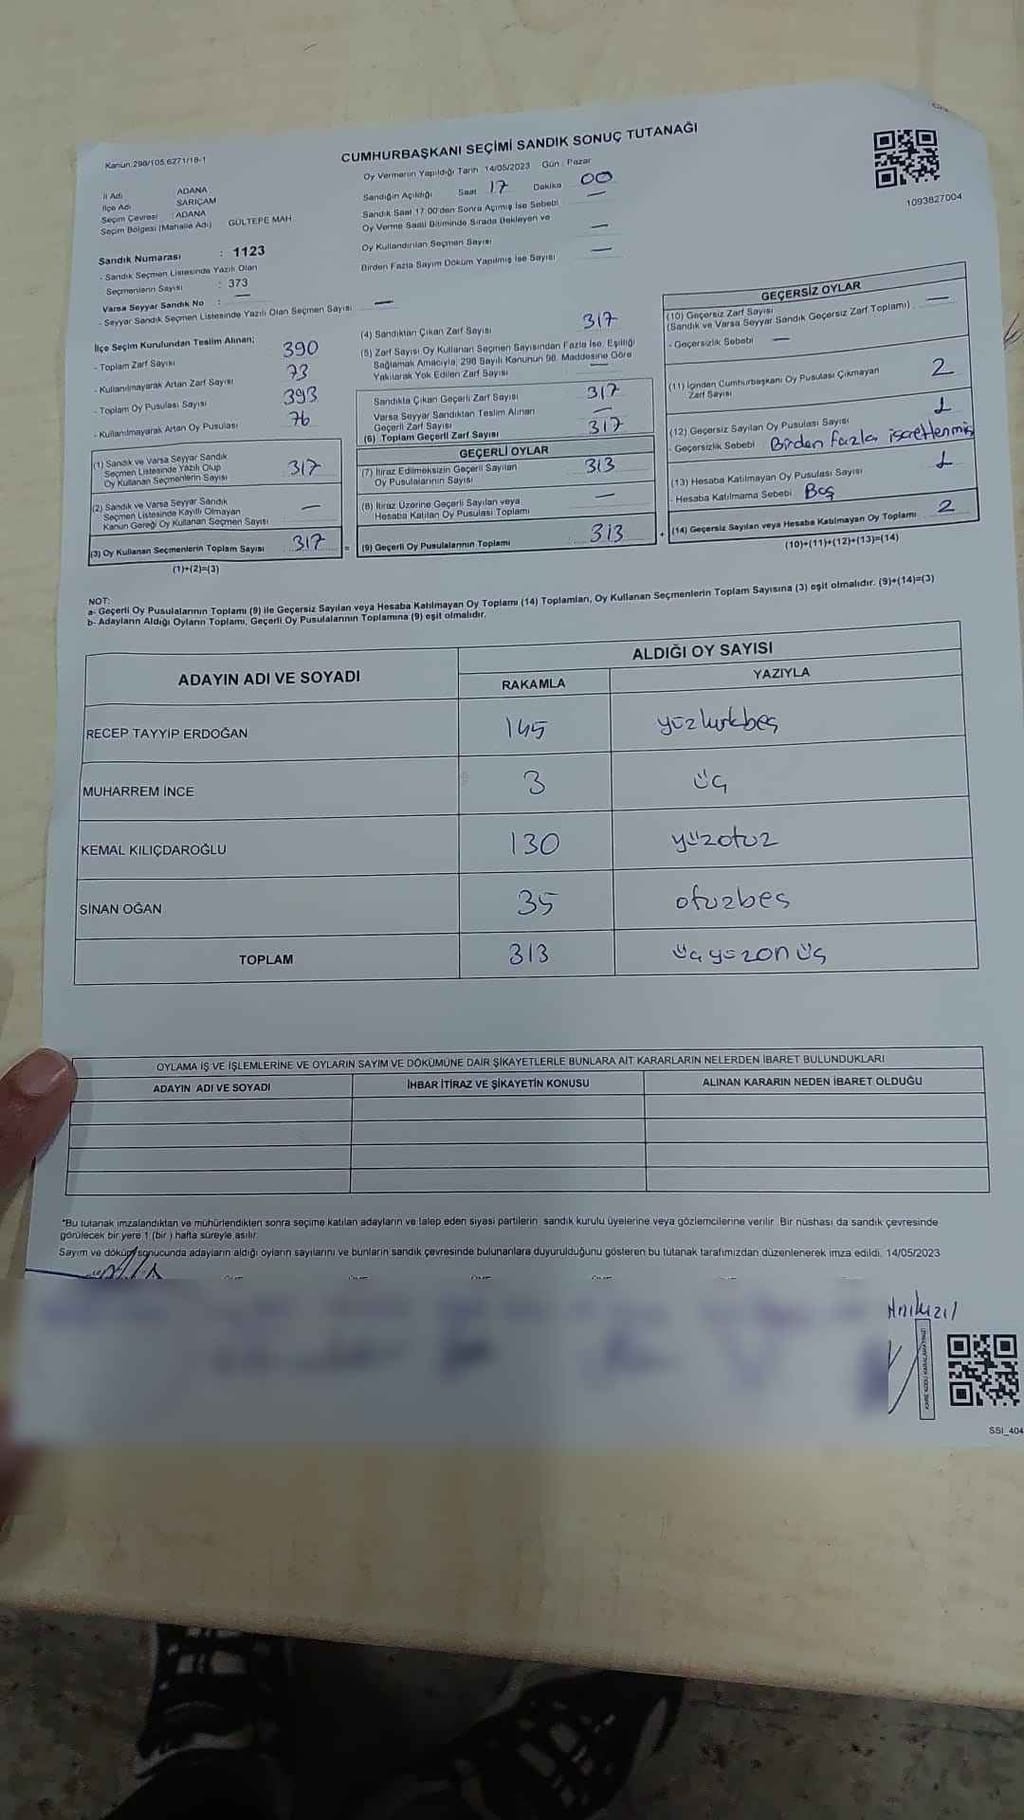 Kanun:298/105 6271/18-1
CUMHURBAŞKANI SEÇİMİ SANDIK SONUÇ TUTANAĞI
1093827004
İl Adı ADANA
İlçe Adı SARIÇAM
Seçim Çevresi : ADANA
Seçim Bölgesi (Mahalle Adı) GÜLTEPE MAH
Sandık Numarası : 1123
- Sandık Seçmen Listesinde Yazılı Olan
Seçmenlerin Sayısı : 373
Varsa Seyyar Sandık No : —
- Seyyar Sandık Seçmen Listesinde Yazılı Olan Seçmen Sayısı —
Oy Vermenin Yapıldığı Tarih 14/05/2023 Gün : Pazar
Sandığın Açıldığı Saat 17 Dakika 00
Sandık Saat 17:00'den Sonra Açılmış İse Sebebi —
Oy Verme Saati Bitiminde Sırada Bekleyen ve
Oy Kullandırılan Seçmen Sayısı —
Birden Fazla Sayım Döküm Yapılmış İse Sayısı —
İlçe Seçim Kurulundan Teslim Alınan;
- Toplam Zarf Sayısı 390
- Kullanılmayarak Artan Zarf Sayısı 73
- Toplam Oy Pusulası Sayısı 393
- Kullanılmayarak Artan Oy Pusulası 76
(1) Sandık ve Varsa Seyyar Sandık
Seçmen Listesinde Yazılı Olup
Oy Kullanan Seçmenlerin Sayısı 317
(2) Sandık ve Varsa Seyyar Sandık
Seçmen Listesinde Kayıtlı Olmayan
Kanun Gereği Oy Kullanan Seçmen Sayısı —
(3) Oy Kullanan Seçmenlerin Toplam Sayısı 317
(1)+(2)=(3)
(4) Sandıktan Çıkan Zarf Sayısı 317
(5) Zarf Sayısı Oy Kullanan Seçmen Sayısından Fazla İse, Eşitliği
Sağlamak Amacıyla, 298 Sayılı Kanunun 98. Maddesine Göre
Yakılarak Yok Edilen Zarf Sayısı —
Sandıkta Çıkan Geçerli Zarf Sayısı 317
Varsa Seyyar Sandıktan Teslim Alınan
Geçerli Zarf Sayısı —
(6) Toplam Geçerli Zarf Sayısı 317
GEÇERLİ OYLAR
(7) İtiraz Edilmeksizin Geçerli Sayılan
Oy Pusulalarının Sayısı 313
(8) İtiraz Üzerine Geçerli Sayılan veya
Hesaba Katılan Oy Pusulası Toplamı —
= (9) Geçerli Oy Pusulalarının Toplamı 313
GEÇERSİZ OYLAR
(10) Geçersiz Zarf Sayısı —
(Sandık ve Varsa Seyyar Sandık Geçersiz Zarf Toplamı)
- Geçersizlik Sebebi —
(11) İçinden Cumhurbaşkanı Oy Pusulası Çıkmayan
Zarf Sayısı 2
(12) Geçersiz Sayılan Oy Pusulası Sayısı 1
- Geçersizlik Sebebi Birden fazla işaretlenmiş
(13) Hesaba Katılmayan Oy Pusulası Sayısı 1
- Hesaba Katılmama Sebebi Boş
+ (14) Geçersiz Sayılan veya Hesaba Katılmayan Oy Toplamı 2
(10)+(11)+(12)+(13)=(14)
NOT:
a- Geçerli Oy Pusulalarının Toplamı (9) ile Geçersiz Sayılan veya Hesaba Katılmayan Oy Toplamı (14) Toplamları, Oy Kullanan Seçmenlerin Toplam Sayısına (3) eşit olmalıdır. (9)+(14)=(3)
b- Adayların Aldığı Oyların Toplamı, Geçerli Oy Pusulalarının Toplamına (9) eşit olmalıdır.
ADAYIN ADI VE SOYADI ALDIĞI OY SAYISI
RAKAMLA YAZIYLA
RECEP TAYYİP ERDOĞAN 145 yüzkırkbeş
MUHARREM İNCE 3 üç
KEMAL KILIÇDAROĞLU 130 yüzotuz
SİNAN OĞAN 35 otuzbeş
TOPLAM 313 üçyüzonüç
OYLAMA İŞ VE İŞLEMLERİNE VE OYLARIN SAYIM VE DÖKÜMÜNE DAİR ŞİKAYETLERLE BUNLARA AİT KARARLARIN NELERDEN İBARET BULUNDUKLARI
ADAYIN ADI VE SOYADI İHBAR İTİRAZ VE ŞİKAYETİN KONUSU ALINAN KARARIN NEDEN İBARET OLDUĞU
*Bu tutanak imzalandıktan ve mühürlendikten sonra seçime katılan adayların ve talep eden siyasi partilerin sandık kurulu üyelerine veya gözlemcilerine verilir. Bir nüshası da sandık çevresinde
görülecek bir yere 1 (bir) hafta süreyle asılır.
Sayım ve döküm sonucunda adayların aldığı oyların sayılarını ve bunların sandık çevresinde bulunanlara duyurulduğunu gösteren bu tutanak tarafımızdan düzenlenerek imza edildi. 14/05/2023
SSI_404